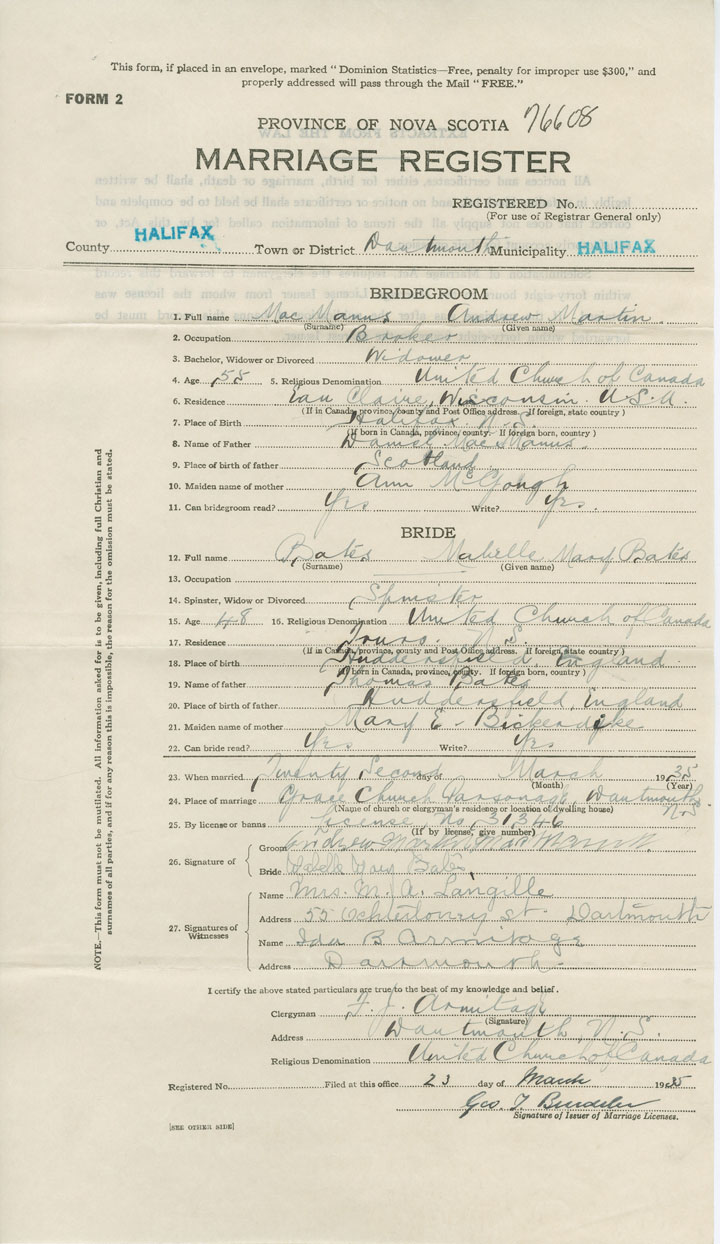 This form, if placed in an envelope, marked "Dominion Statistics—Free, penalty for improper use $300," and
properly addressed will pass through the Mail "FREE."
FORM 2
PROVINCE OF NOVA SCOTIA 76608
MARRIAGE REGISTER
REGISTERED No.
(For use of Registrar General only)
County HALIFAX Town or District Dartmouth Municipality HALIFAX
BRIDEGROOM
1. Full name Mac Manus Andrew Martin
(Surname) (Given name)
2. Occupation Broker
3. Bachelor, Widower or Divorced Widower
4. Age 55 5. Religious Denomination United Church of Canada
6. Residence Eau Claire, Wisconsin. U.S.A.
(If in Canada, province, county and Post Office address. If foreign, state country)
7. Place of Birth Halifax N.S.
(If born in Canada, province, county. If foreign born, country)
8. Name of Father Daniel Mac Manus
9. Place of birth of father Scotland
10. Maiden name of mother Ann McGough
11. Can bridegroom read? Yes Write? Yes.
BRIDE
12. Full name Bates Mabelle Mary Bates
(Surname) (Given name)
13. Occupation
14. Spinster, Widow or Divorced Spinster
15. Age 48 16. Religious Denomination United Church of Canada
17. Residence Truro. N.S.
(If in Canada, province, county and Post Office address. If foreign, state country)
18. Place of birth Huddersfield, England.
(If born in Canada, province, county. If foreign born, country)
19. Name of father Thomas Bates
20. Place of birth of father Huddersfield, England
21. Maiden name of mother Mary E. Bickerdike
22. Can bride read? Yes Write? Yes
23. When married Twenty Second day of March 1935
(Month) (Year)
24. Place of marriage Grace Church Parsonage, Dartmouth N.S
(Name of church or clergyman's residency or location of dwelling house)
25. By license or banns License no. 31346
(If by license, give number)
26. Signature of
Groom Andrew Martin MacManus
Bride Mabelle Mary Bates
27. Signatures of Witnesses
Name Mrs. M. A. Langille
Address 55 Ochterloney St. Dartmouth
Name Ida B Armitage
Address Dartmouth.
I certify the above stated particulars are true to the best of my knowledge and belief.
Clergyman F. J. Armitage
(Signature)
Address Dartmouth, N.S.
Religious Denomination United Church of Canada
Registered No. Filed at this office 23 day of March 1935
Geo. T.
Signature of Issuer of Marriage Licenses.
[SEE OTHER SIDE]
NOTE.—This form must not be mutilated. All information asked for is to be given, including full Christian and
surnames of all parties, and if for any reason this is impossible, the reason for the omission must be stated.